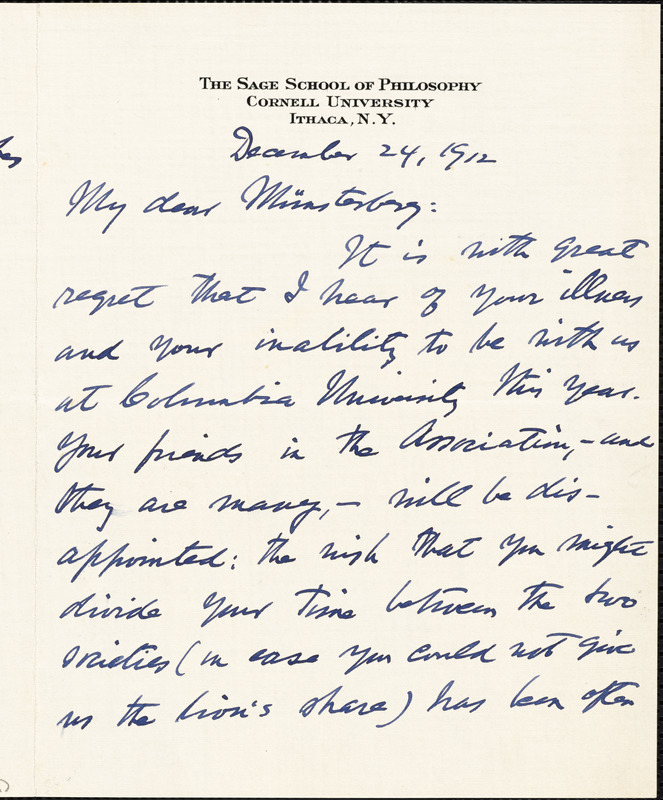 THE SAGE SCHOOL OF PHILOSOPHY
CORNELL UNIVERSITY
ITHACA, N.Y.
December 24, 1912
My dear Münsterberg:
It is with great
regret that I hear of your illness
and your inability to be with us
at Columbia University this year.
Your friends in the Association, – and
they are many, – will be dis-
appointed: the wish that you might
divide your time between the two
societies (in case you could not give
us the lion's share) has been often